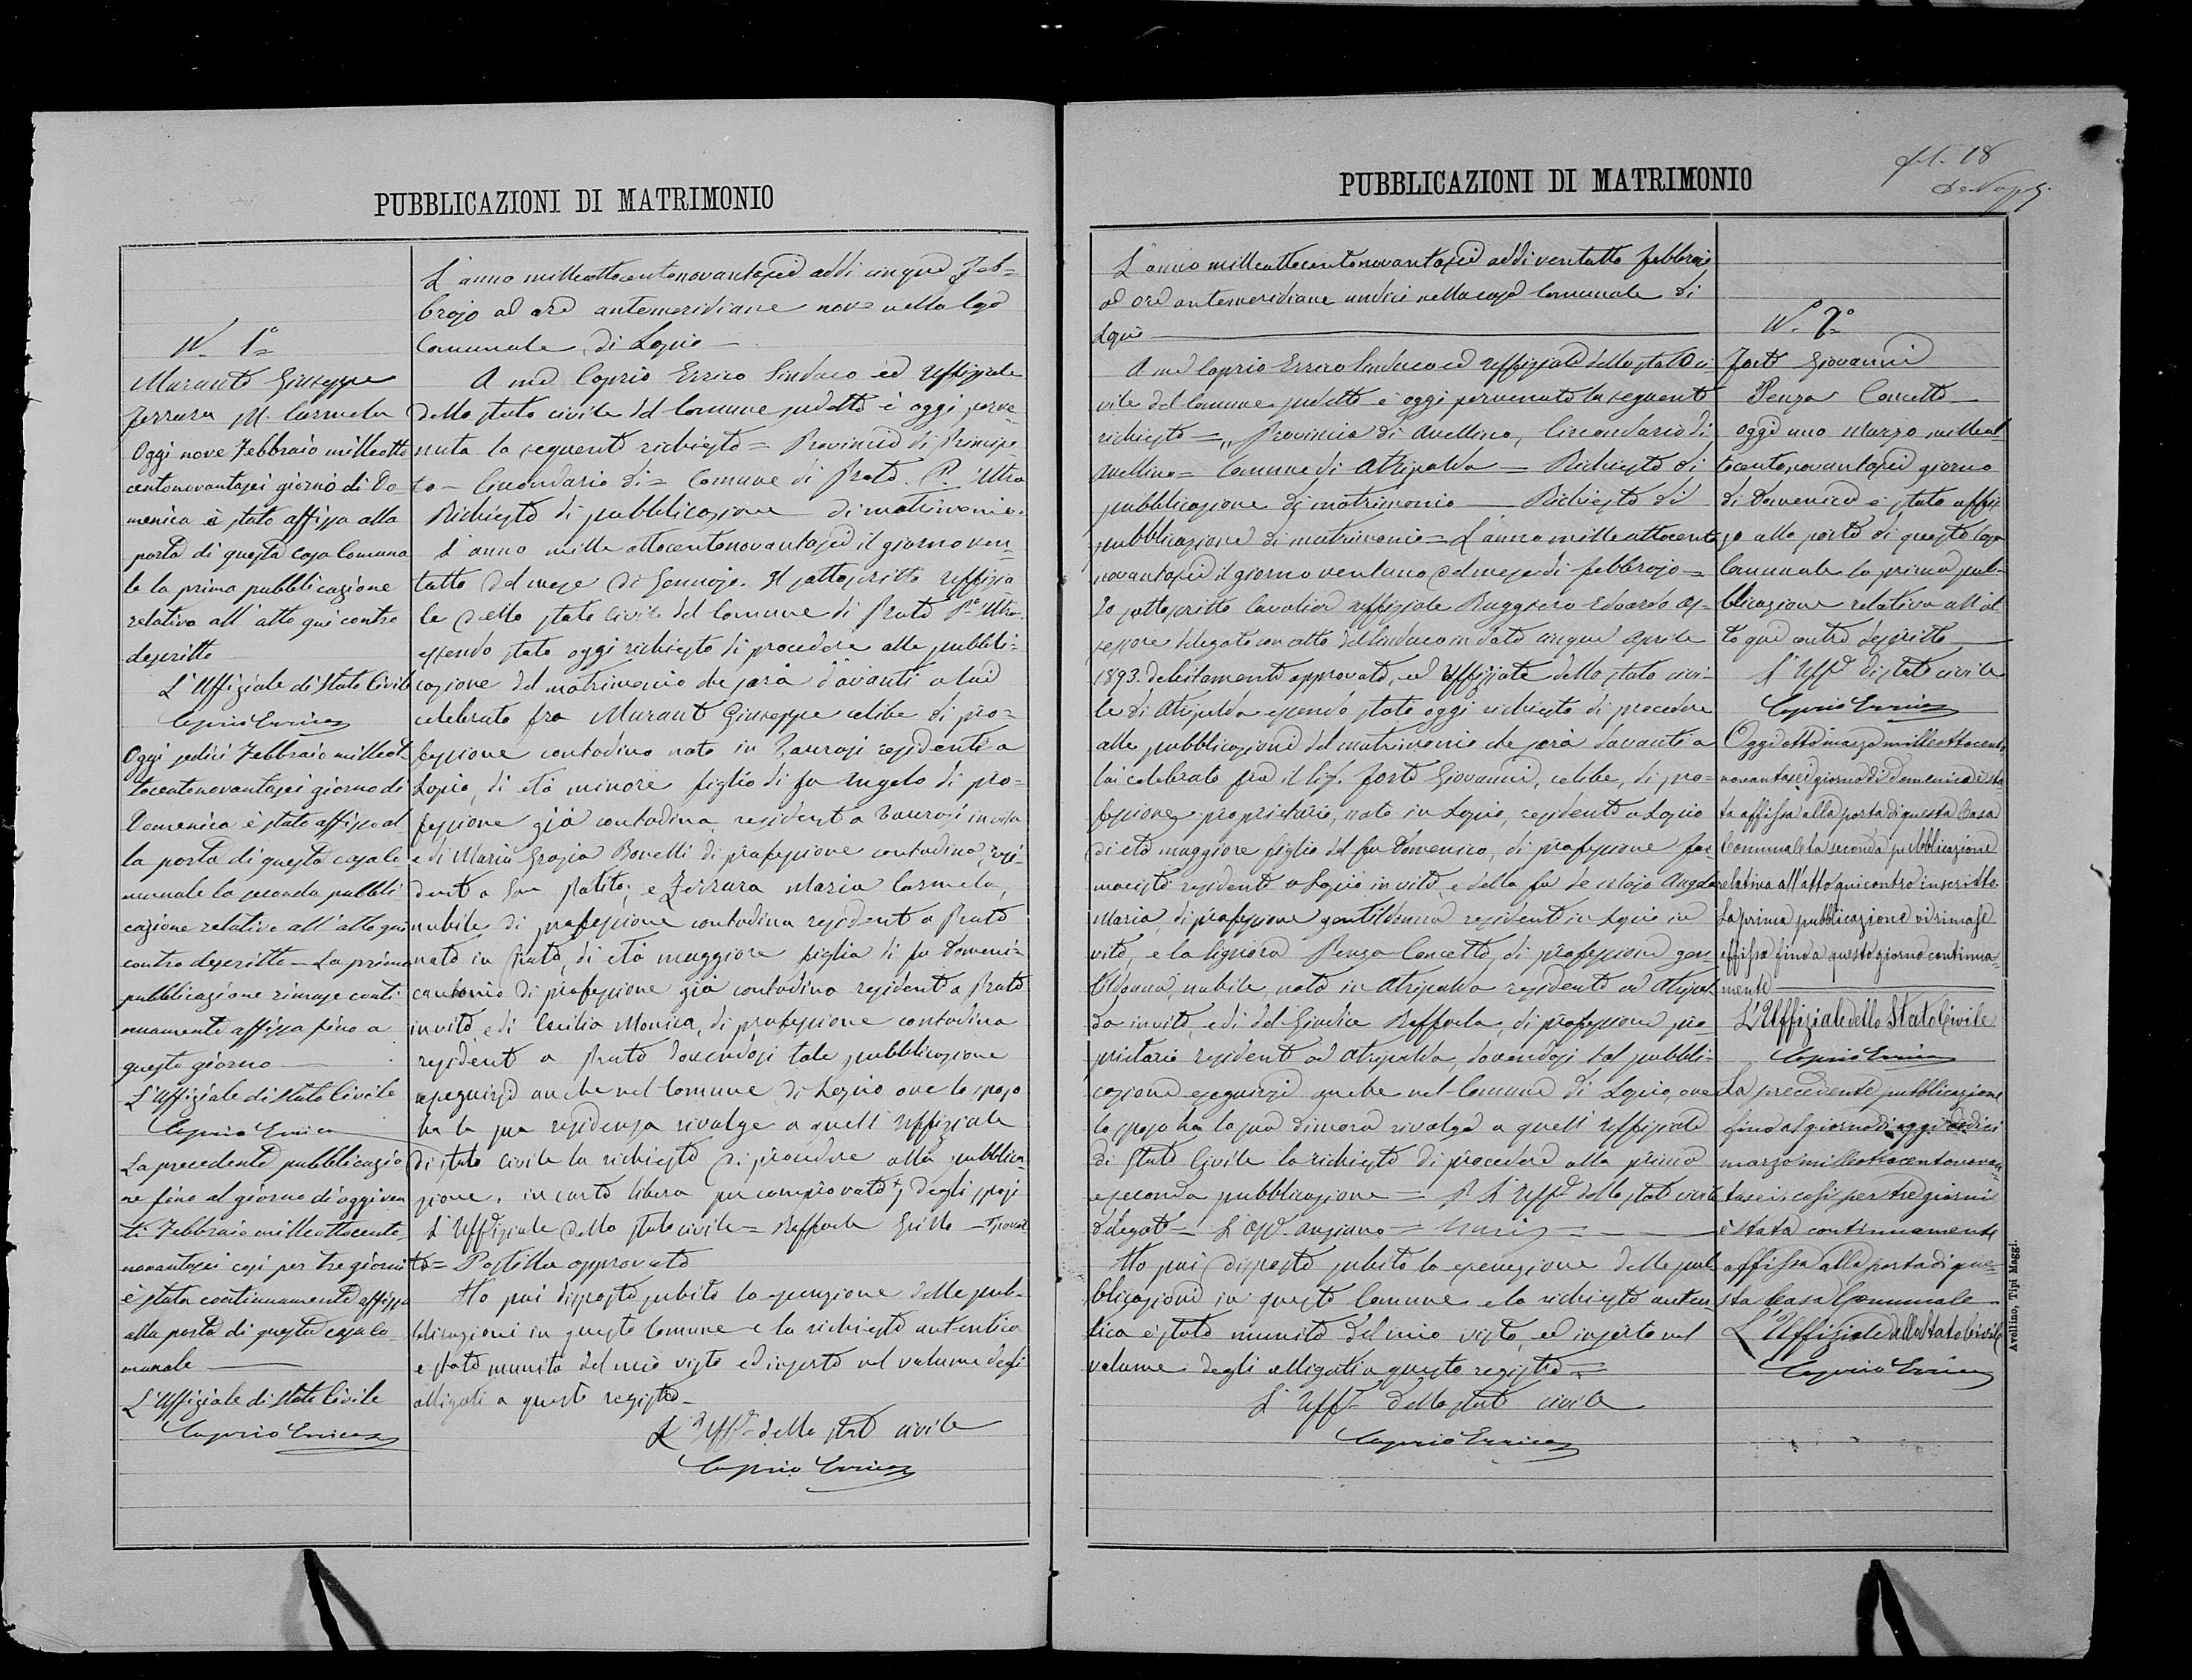 PUBBLICAZIONI DI MATRIMONIO
N. 1º
Murante Giuseppe
Ferrara M. Carmela
Oggi nove Febbraio milleotto
centonovantasei giorno di Do-
menica è stata affissa alla
porta di questa casa Comuna
le la prima pubblicazione
relativa all'atto qui contro
descritto
L'Uffiziale di Stato Civile
Caprio Errico
Oggi sedici Febbraio milleot-
tocentonovantasei giorno di
Domenica è stata affissa al
la porta di questa casa Co
munale la seconda pubbli
cazione relativa all'atto qui
contro descritto - La prima
pubblicazione rimase conti
nuamente affissa fino a
questo giorno
L'Uffiziale di Stato Civile
Caprio Errico
La precedente pubblicazio
ne fino al giorno di oggi ven
ti Febbraio milleottocento
novantasei così per tre giorni
è stata continuamente affissa
alla porta di questa casa Co
munale
L'Uffiziale di Stato Civile
Caprio Errico
L'anno milleottocentonovantasei addì cinque Feb=
brajo ad ore antemeridiane nove nella Casa
Comunale di Lapio
A me Caprio Errico Sindaco ed Uffiziale
dello stato civile del Comune sudetto è oggi perve
nuta la seguente richiesta = Provincia di Principa
to - Circondario di = Comune di Prata P. Ultra
Richiesta di pubblicazione di matrimonio.
L'anno mille ottocentonovantasei il giorno ven-
totto del mese di Gennajo. Il sottoscritto uffizia
le dello stato civile del Comune di Prata P. Ultra
essendo stato oggi richiesto di procedere alla pubbli=
cazione del matrimonio che sarà davanti a lui
celebrato fra Murante Giuseppe celibe di pro=
fessione contadino nato in Taurasi residente a
Lapio, di età minore figlio di fu Angelo di pro=
fessione già contadino, residente a Taurasi in vita
e di Maria Grazia Bonelli di professione contadina, resi-
dente a San Potito; e Ferrara Maria Carmela,
nubile di professione contadina residente a Prata
nata in Prata, di età maggiore figlia di fu Domeni=
cantonio di professione già contadino residente a Prata
in vita, e di Cecilia Monica, di professione contadina
residente a Prata dovendosi tale pubblicazione
eseguirsi anche nel Comune di Lapio ove lo sposo
ha la sua residenza rivolge a quell'Uffiziale
di stato civile la richiesta di procedere alla pubblica-
zione, in carta libera per comprovata + degli sposi
L'Uffiziale dello stato civile = Raffaele Grillo - + povert
tà = Postilla approvata
Ho poi disposto subito la esecuzione delle pub-
blicazioni in questo Comune e la richiesta autentica
è stata munita del mio visto ed inserta nel volume degli
allegati a questo registro -
L'Uff.e dello stato civile
Caprio Errico
PUBBLICAZIONI DI MATRIMONIO
fol. 18
L'anno milleottocentonovantasei addì ventotto febbraio
ad ore antemeridiane undici nella casa Comunale di
Lapio
A me Caprio Errico Sindaco ed Uffiziale dello stato ci
vile del Comune sudetto è oggi pervenuta la seguente
richiesta = „ Provincia di Avellino, Circondario di
Avellino = Comune di Atripalda = Richiesta di
pubblicazione di matrimonio - Richiesta di
pubblicazione di matrimonio = L'anno milleottocento
novantasei il giorno ventuno del mese di febbrajo =
Io sottoscritto Cavalier uffiziale Ruggiero Edoardo as-
sessore delegato con atto del Sindaco in data cinque Aprile
1893. debitamente approvato, ed Uffiziale dello stato civi-
le di Atripalda essendo stato oggi richiesto di procedere
alle pubblicazioni del matrimonio che sarà davanti a
lui celebrato fra il Sig. Forte Giovanni, celibe, di pro=
fessione proprietario, nato in Lapio, residente a Lapio
di età maggiore figlio del fu Domenico, di professione far
macista residente a Lapio in vita, e della fu Angela
Maria, di professione gentildonna residente in Lapio in
vita, e la Signora Penza Concetta, di professione gen-
tildonna, nubile, nata in Atripalda residente ad Atripal
da in vita, e di del Giudice Raffaela, di professione pro-
prietaria residente ad Atripalda, dovendosi tal pubbli-
cazione eseguirsi anche nel Comune di Lapio, ove
lo sposo ha la sua dimora rivolge a quell'Uffiziale
di Stato Civile la richiesta di procedere alla prima
e seconda pubblicazione = P. L'Uff.e dello stato civile
delegato = L'Ass. anziano =
Ho poi disposto subito la esecuzione delle pub
blicazioni in questo Comune e la richiesta auten-
tica è stata munita del mio visto, ed inserta nel
volume degli allegati a questo registro =
L'Uff.e dello stato civile
Caprio Errico
N. 2º
Forte Giovanni
Penza Concetta
Oggi uno Marzo milleot
tocentonovantasei giorno
di Domenica è stata affis
sa alla porta di questa Casa
Comunale la prima pub-
blicazione relativa all'at
to qui contro descritto
L'Uff.e di stato civile
Caprio Errico
Oggi otto marzo milleottocento
novantasei giorno di Domenica è sta
ta affissa alla porta di questa Casa
Comunale la seconda pubblicazione
relativa all'atto qui contro inscritto.
La prima pubblicazione vi rimase
affissa fino a questo giorno continua-
mente
L'Uffiziale dello Stato Civile
Caprio Errico
La precedente pubblicazione
fino al giorno di oggi dodici
marzo milleottocentonovan
tasei, così per tre giorni
è stata continuamente
affissa alla porta di que-
sta Casa Comunale
L'Uffiziale dello Stato Civile
Caprio Errico
Avellino, Tipi Maggi.